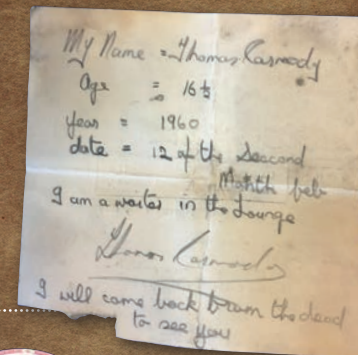 My Name = Thomas Carmody
Age = 16½
year = 1960
date = 12 of the Seacond
Month feb
I am a waiter in the Lounge
Thomas Carmody
I will come back from the dead
to see you